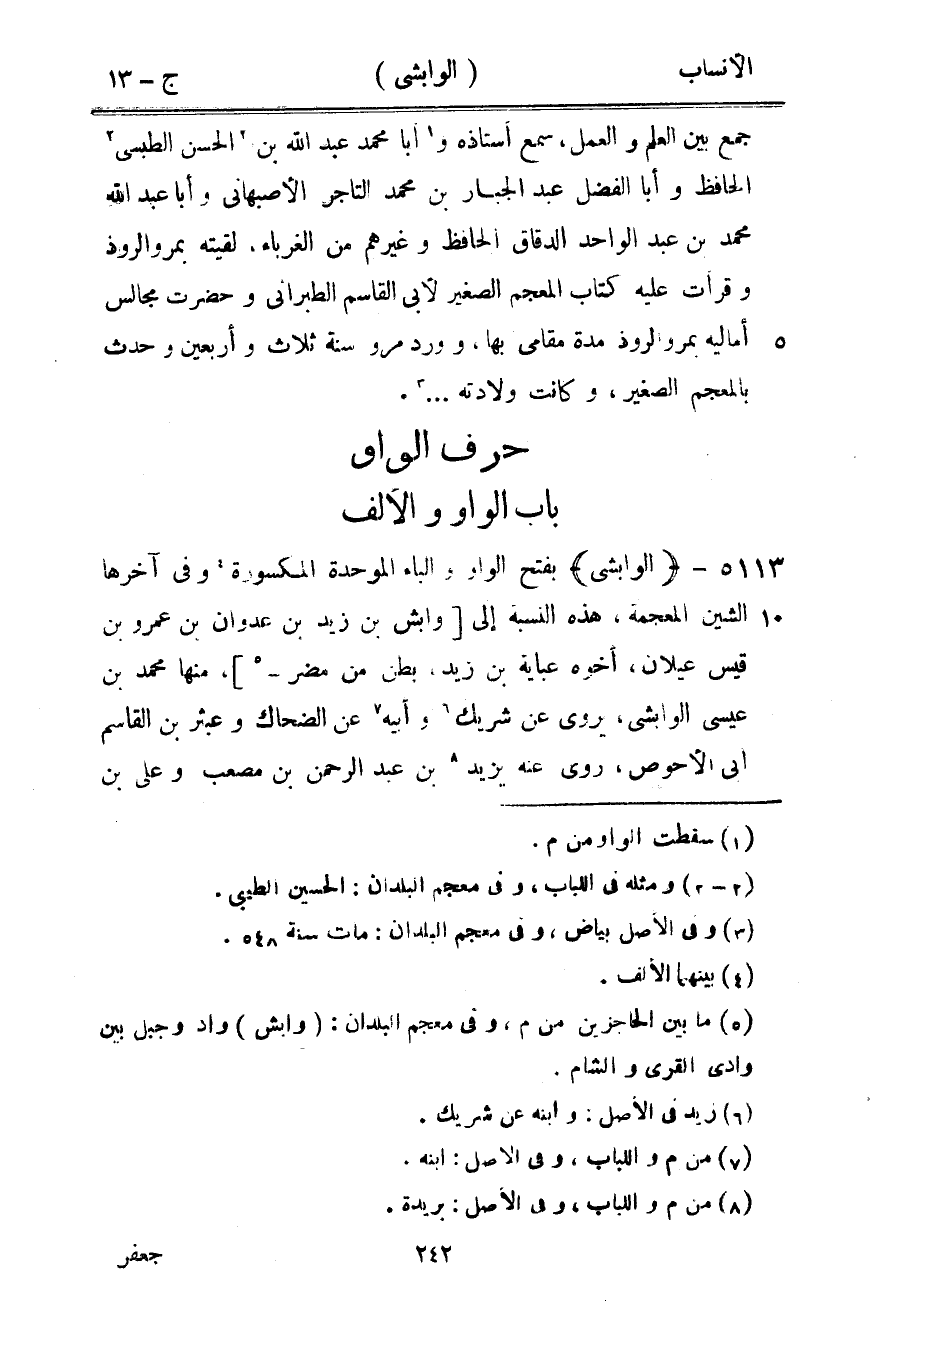 الأنساب ( الوابشى ) ج – ١٣
جمع بين العلم و العمل، سمع أستاذه و١ أبا محمد عبد الله بن ٢ الحسن الطبسى ٢
الحافظ و أبا الفضل عبد الجبار بن محمد التاجر الأصبهانى و أبا عبد الله
محمد بن عبد الواحد الدقاق الحافظ و غيرهم من الغرباء، لقيته بمروالروذ
و قرأت عليه كتاب المعجم الصغير لأبى القاسم الطبرانى و حضرت مجالس
٥ أماليه بمروالروذ مدة مقامى بها، و ورد مرو سنة ثلاث و أربعين و حدث
بالمعجم الصغير، و كانت ولادته ...٣ .
حرف الواو
باب الواو و الألف
٥١١٣ – ﴿ الوابشى ﴾ بفتح الواو و الباء الموحدة المكسورة ٤ و فى آخرها
١٠ الشين المعجمة، هذه النسبة إلى [ وابش بن زيد بن عدوان بن عمرو بن
قيس عيلان، أخوه عباية بن زيد، بطن من مضر – ٥ ]، منها محمد بن
عيسى الوابشى، يروى عن شريك ٦ و أبيه ٧ عن الضحاك و عبثر بن القاسم
أبى الأحوص، روى عنه يزيد ٨ بن عبد الرحمن بن مصعب و على بن
(١) سقطت الواو من م .
(٢ – ٢) و مثله فى اللباب، و فى معجم البلدان : الحسين الطيبى .
(٣) و فى الأصل بياض، و فى معجم البلدان : مات سنة ٥٤٨ .
(٤) بينهما الألف .
(٥) ما بين الحاجزين من م، و فى معجم البلدان : ( وابش ) واد و جبل بين
وادى القرى و الشام .
(٦) زيد فى الأصل : و ابنه عن شريك .
(٧) من م و اللباب، و فى الاصل : ابنه .
(٨) من م و اللباب، و فى الأصل : بريدة .
٢٤٢ جعفر